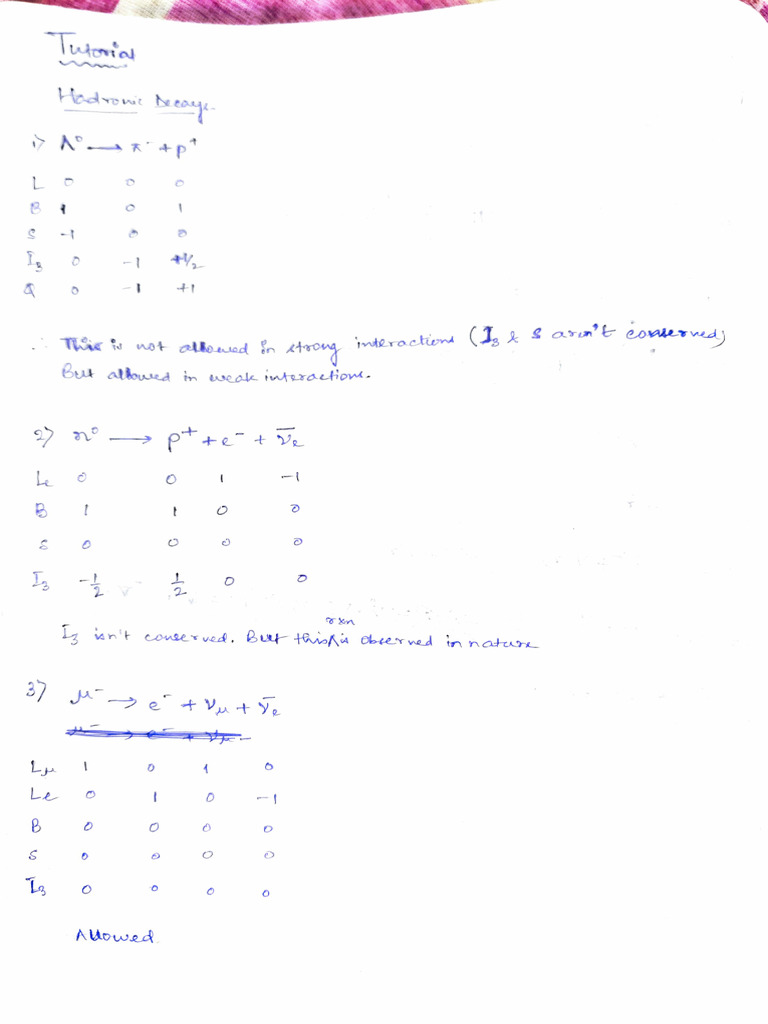 Tutorial
Hadronic Decays.
1) Λ⁰ ⟶ π⁻ + p⁺
L 0 0 0
B 1 0 1
S -1 0 0
I₃ 0 -1 +1/2
Q 0 -1 +1
∴ This is not allowed in strong interactions (I₃ & S aren't conserved)
But allowed in weak interactions.
2) n⁰ ⟶ p⁺ + e⁻ + ν̅ₑ
Le 0 0 1 -1
B 1 1 0 0
S 0 0 0 0
I₃ -1/2 1/2 0 0
I₃ isn't conserved. But this rxn is observed in nature
3) μ⁻ ⟶ e⁻ + ν_μ + ν̅ₑ
L_μ 1 0 1 0
Le 0 1 0 -1
B 0 0 0 0
S 0 0 0 0
I₃ 0 0 0 0
Allowed.